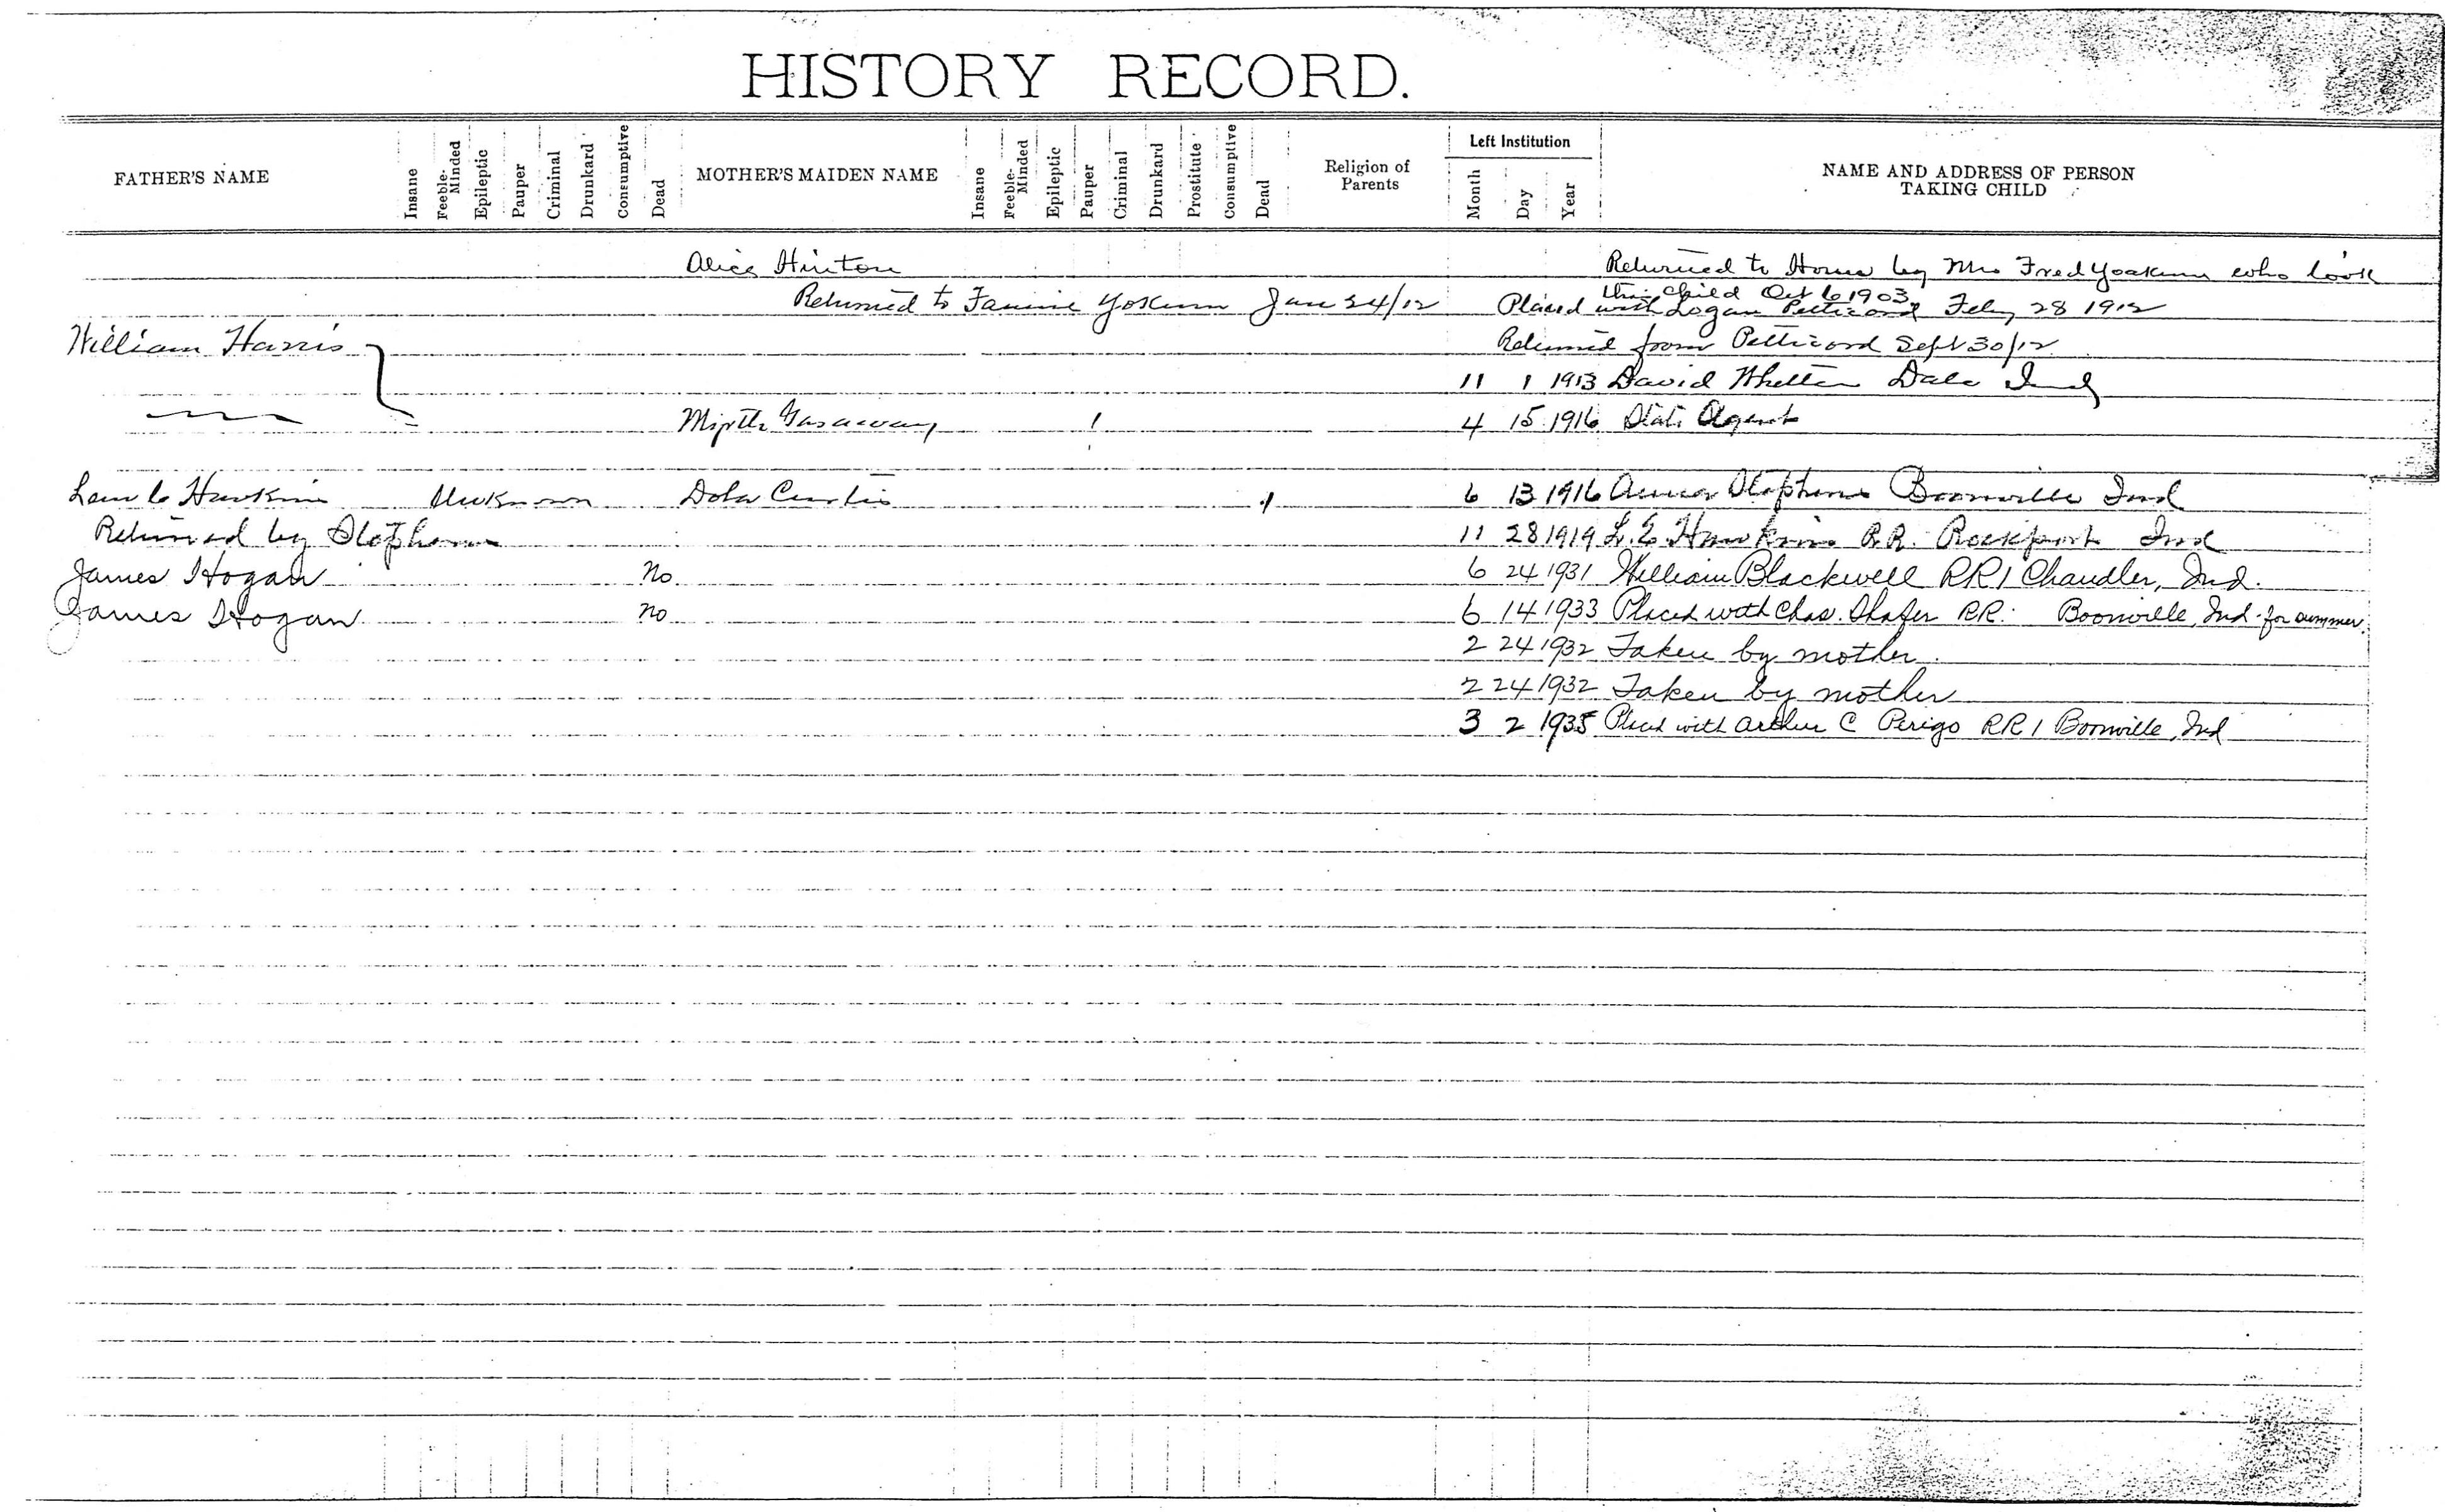 HISTORY RECORD.
FATHER'S NAME Insane Feeble-Minded Epileptic Pauper Criminal Drunkard Consumptive Dead MOTHER'S MAIDEN NAME Insane Feeble-Minded Epileptic Pauper Criminal Drunkard Prostitute Consumptive Dead Religion of Parents Left Institution Month Day Year NAME AND ADDRESS OF PERSON TAKING CHILD
Alice Hinton Returned to Home by Mrs Fred Yoakum who took
this child Oct 6 1903
Returned to Fannie Yokum Jan 24/12 Placed with Logan Petticord Feby 28 1912
William Harris Returned from Petticord Sept 30/12
11 1 1913 David Dale Ind
Myrtle Gasaway 1 4 15 1916 State Agent
Hawkins Unknown Dola Curtis 1 6 13 1916 Stephens Boonville Ind
Returned by Stephens 11 28 1919 L. E. Hawkins R.R. Rockport Ind
James Hogan No 6 24 1931 William Blackwell RR1 Chandler, Ind.
James Hogan no 6 14 1933 Placed with Chas. Shafer RR. Boonville, Ind. for summer.
2 24 1932 Taken by mother.
2 24 1932 Taken by mother
3 2 1935 Placed with Arthur C Perigo RR 1 Boonville, Ind